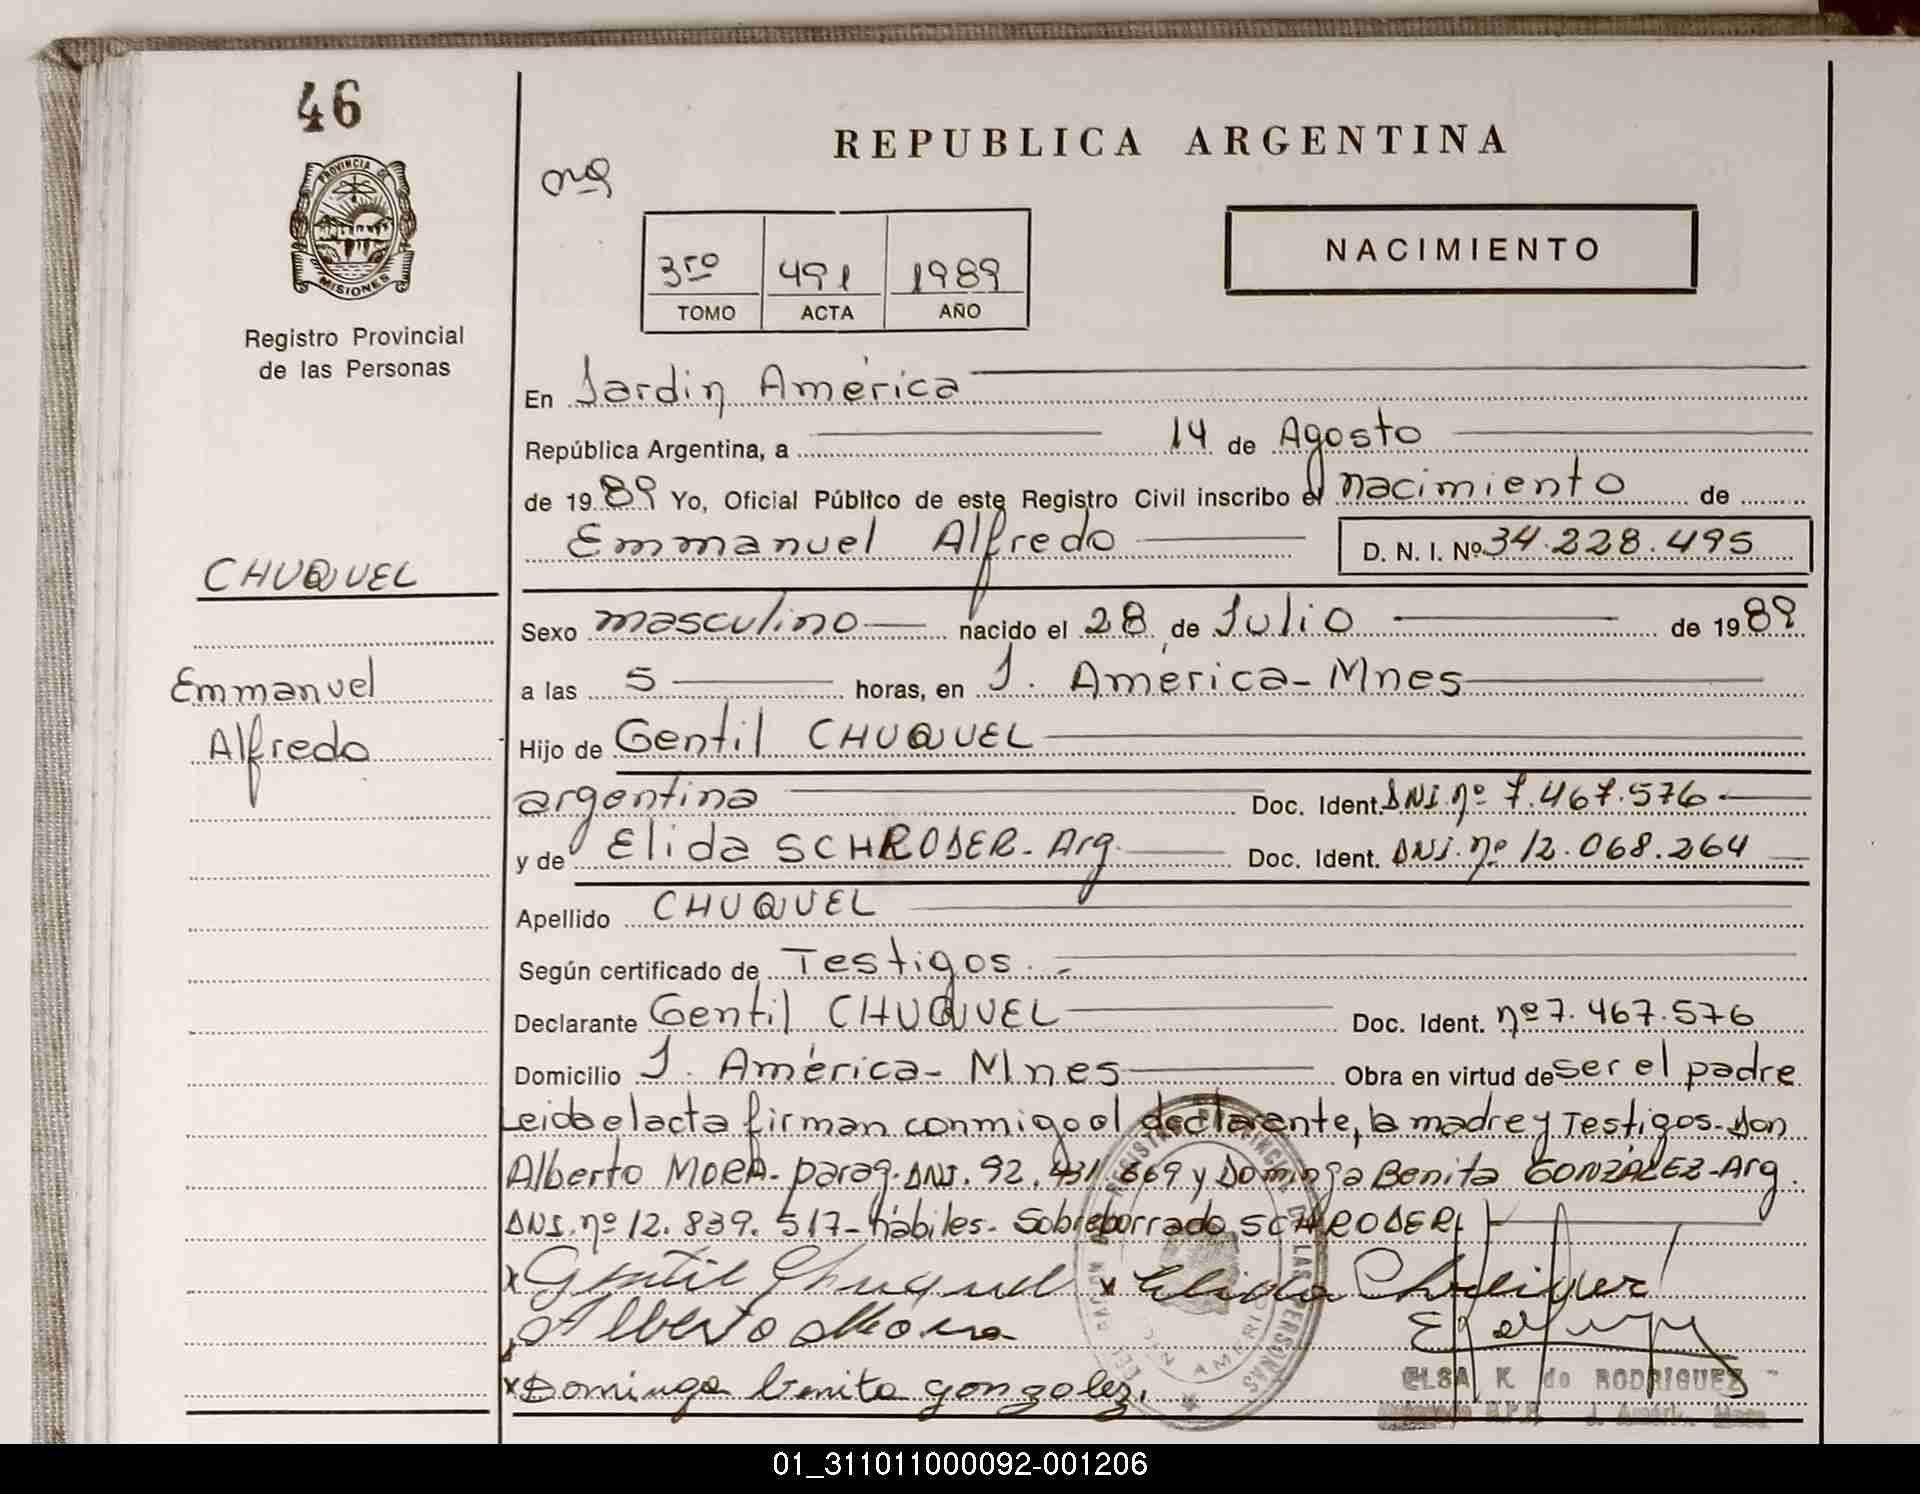 46
PROVINCIA DE
MISIONES
Registro Provincial
de las Personas
CHUQUEL
Emmanuel
Alfredo
REPUBLICA ARGENTINA
NACIMIENTO
3ro 491 1989
TOMO ACTA AÑO
En Jardin América
República Argentina, a 14 de Agosto
de 1989 Yo, Oficial Público de este Registro Civil inscribo el nacimiento de
Emmanuel Alfredo D. N. I. Nº 34.228.495
Sexo masculino nacido el 28 de Julio de 1989
a las 5 horas, en J. América - Mnes
Hijo de Gentil CHUQUEL
argentina Doc. Ident. DNI. nº 7.467.576
y de Elida SCHRODER - Arg. Doc. Ident. DNI. nº 12.068.264
Apellido CHUQUEL
Según certificado de Testigos. -
Declarante Gentil CHUQUEL Doc. Ident. nº 7.467.576
Domicilio J. América - Mnes Obra en virtud de ser el padre
Leida el acta firman conmigo el declarante, la madre y Testigos - Don
Alberto MORA - parag. DNI. 92.431.669 y Dominga Benita GONZÁLEZ - Arg.
DNI. nº 12.839.517 - hábiles - Sobreborrado SCHRODER
x Gentil Chuquel x Elida
Alberto Mora
x Dominga Benita gonzalez.
REGISTRO PROVINCIAL DE LAS PERSONAS
ELSA K. de RODRIGUEZ
01_311011000092-001206